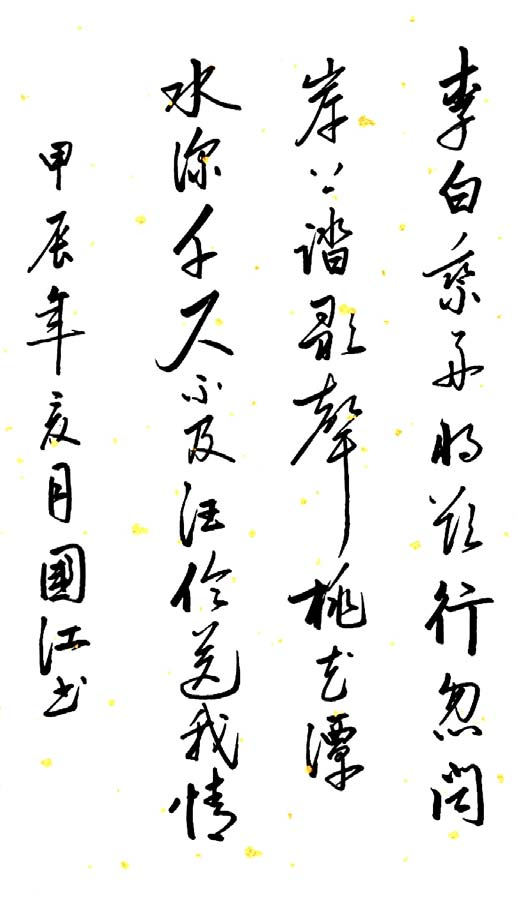 李白乘舟将欲行忽闻
岸上踏歌聲桃花潭
水深千尺不及汪伦送我情
甲辰年亥月國江书